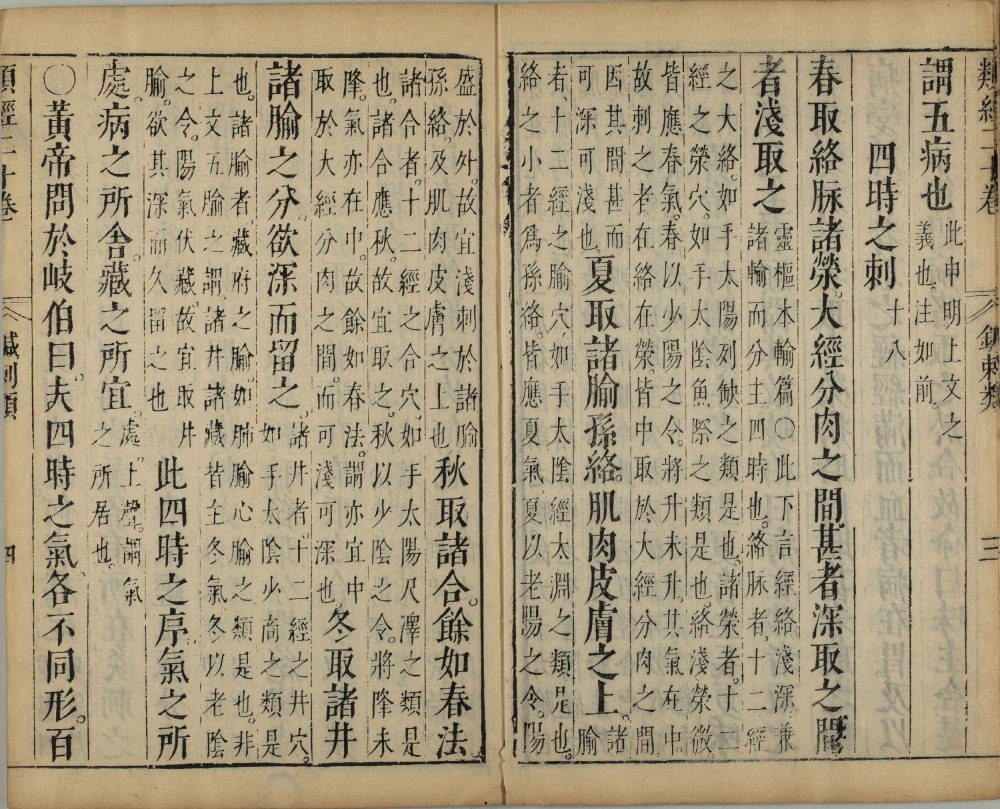 類經二十卷 鍼刺類 三
謂五病也 此申明上文之
義也注如前。
四時之刺 十八
春取絡脉諸滎大經分肉之間甚者深取之間
者淺取之 靈樞本輸篇〇此下言經絡淺深兼
諸輸而分主四時也。絡脉者十二經
之大絡。如手太陽列缺之類是也。諸滎者。十二
經之滎穴。如手太陰魚際之類是也。絡淺滎微。
皆應春氣。春以少陽之令。將升未升。其氣在中。
故刺之者在絡在滎。皆中取於大經分肉之間
因其間甚而
可深可淺也 夏取諸腧孫絡。肌肉皮膚之上。 諸
腧
者、十二經之腧穴如手太陰經太淵之類是也。
絡之小者爲孫絡皆應夏氣。夏以老陽之令。陽
盛於外。故宜淺刺於諸腧
孫絡。及肌肉皮膚之上也 秋取諸合。餘如春法
諸合者。十二經之合穴如手太陽尺澤之類是
也。諸合應秋。故宜取之。秋以少陰之令。將降未
隆。氣亦在中。故餘如春法。謂亦宜中
取於大經分肉之間。而可淺可深也 冬取諸井
諸腧之分。欲深而留之。 諸井者。十二經之井穴。
如手太陰少商之類是
也。諸腧者。藏府之腧。如肺腧心腧之類是也。非
上文五腧之謂。諸井諸藏皆主冬氣。冬以老陰
之令。陽氣伏藏。故宜取井
腧。欲其深而久留之也 此四時之序。氣之所
處。病之所舍。藏之所宜。 處。上聲。謂氣
之所居也。
〇黃帝問於岐伯曰。夫四時之氣。各不同形。百
類經二十卷 鍼刺類 四